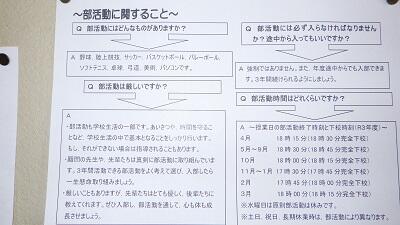 ～部活動に関すること～
Q 部活動にはどんなものがありますか？
A 野球、陸上競技、サッカー、バスケットボール、バレーボール、
ソフトテニス、卓球、弓道、美術、パソコンです。
Q 部活動は厳しいですか？
A
・部活動も学校生活の一部です。あいさつや、時間を守るこ
となど、学校生活の中で基本となることをしっかり行います。
もし、それができない場合は指導されることもあります。
・顧問の先生や、先輩たちは真剣に部活動に取り組んでいま
す。3年間活動できる部活動をよく考えて選び、入部したら
一生懸命取り組みましょう。
・厳しいこともありますが、先輩たちはとても優しく、後輩たちに
教えてくれます。ぜひ入部し、部活動を通して、心も体も成
長させましょう。
Q 部活動には必ず入らなければなりません
か？途中から入ってもいいですか？
A 強制ではありません。また、年度途中からでも入部できま
す。3年間続けられるようにしましょう。
Q 部活動時間はどれくらいですか？
A ～授業日の部活動終了時刻と下校時刻(R3年度)～
4月 18時15分(18時30分完全下校)
5月～9月 18時30分(18時45分完全下校)
10月 18時00分(18時15分完全下校)
11月～1月 17時30分(17時45分完全下校)
2月 17時45分(18時00分完全下校)
3月 18時00分(18時15分完全下校)
※水曜日は原則部活動は休みです。
※土日、祝日、長期休業時は、部活動により異なります。